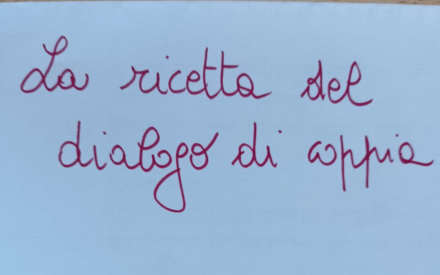 La ricetta del
dialogo di coppia